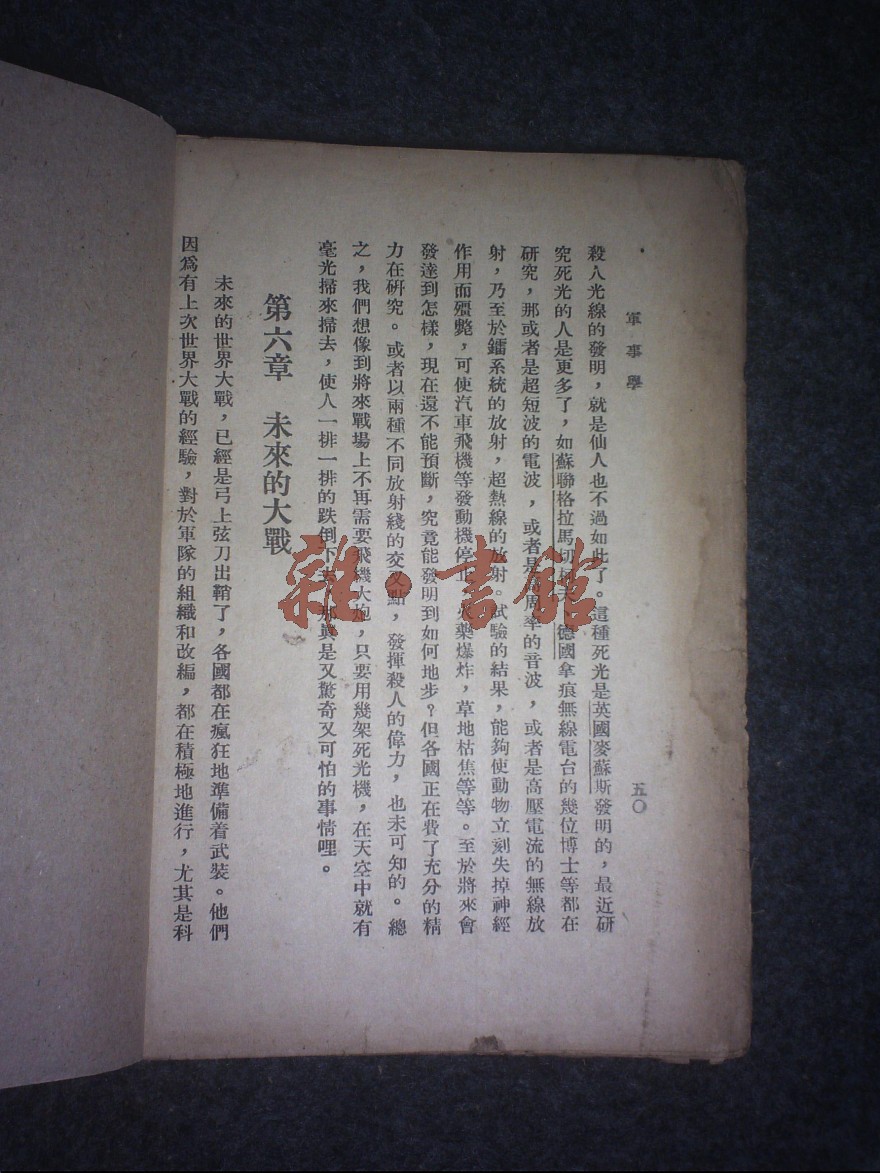 軍事學
五〇
殺人光線的發明，就是仙人也不過如此了。這種死光是英國麥蘇斯發明的，最近研
究死光的人是更多了，如蘇聯格拉馬切夫、德國拿痕無線電台的幾位博士等都在
研究，那或者是超短波的電波，或者是高周率的音波，或者是高壓電流的無線放
射，乃至於鐳系統的放射，超熱線的放射。試驗的結果，能夠使動物立刻失掉神經
作用而殭斃，可使汽車飛機等發動機停止，火藥爆炸，草地枯焦等等。至於將來會
發達到怎樣，現在還不能預斷，究竟能發明到如何地步？但各國正在費了充分的精
力在研究。或者以兩種不同放射綫的交叉點，發揮殺人的偉力，也未可知的。總
之，我們想像到將來戰場上不再需要飛機大炮，只要用幾架死光機，在天空中就有
毫光掃來掃去，使人一排一排的跌倒下去，那眞是又驚奇又可怕的事情哩。
第六章 未來的大戰
未來的世界大戰，已經是弓上弦刀出鞘了，各國都在瘋狂地準備着武裝。他們
因爲有上次世界大戰的經驗，對於軍隊的組織和改編，都在積極地進行，尤其是科
雜·書館